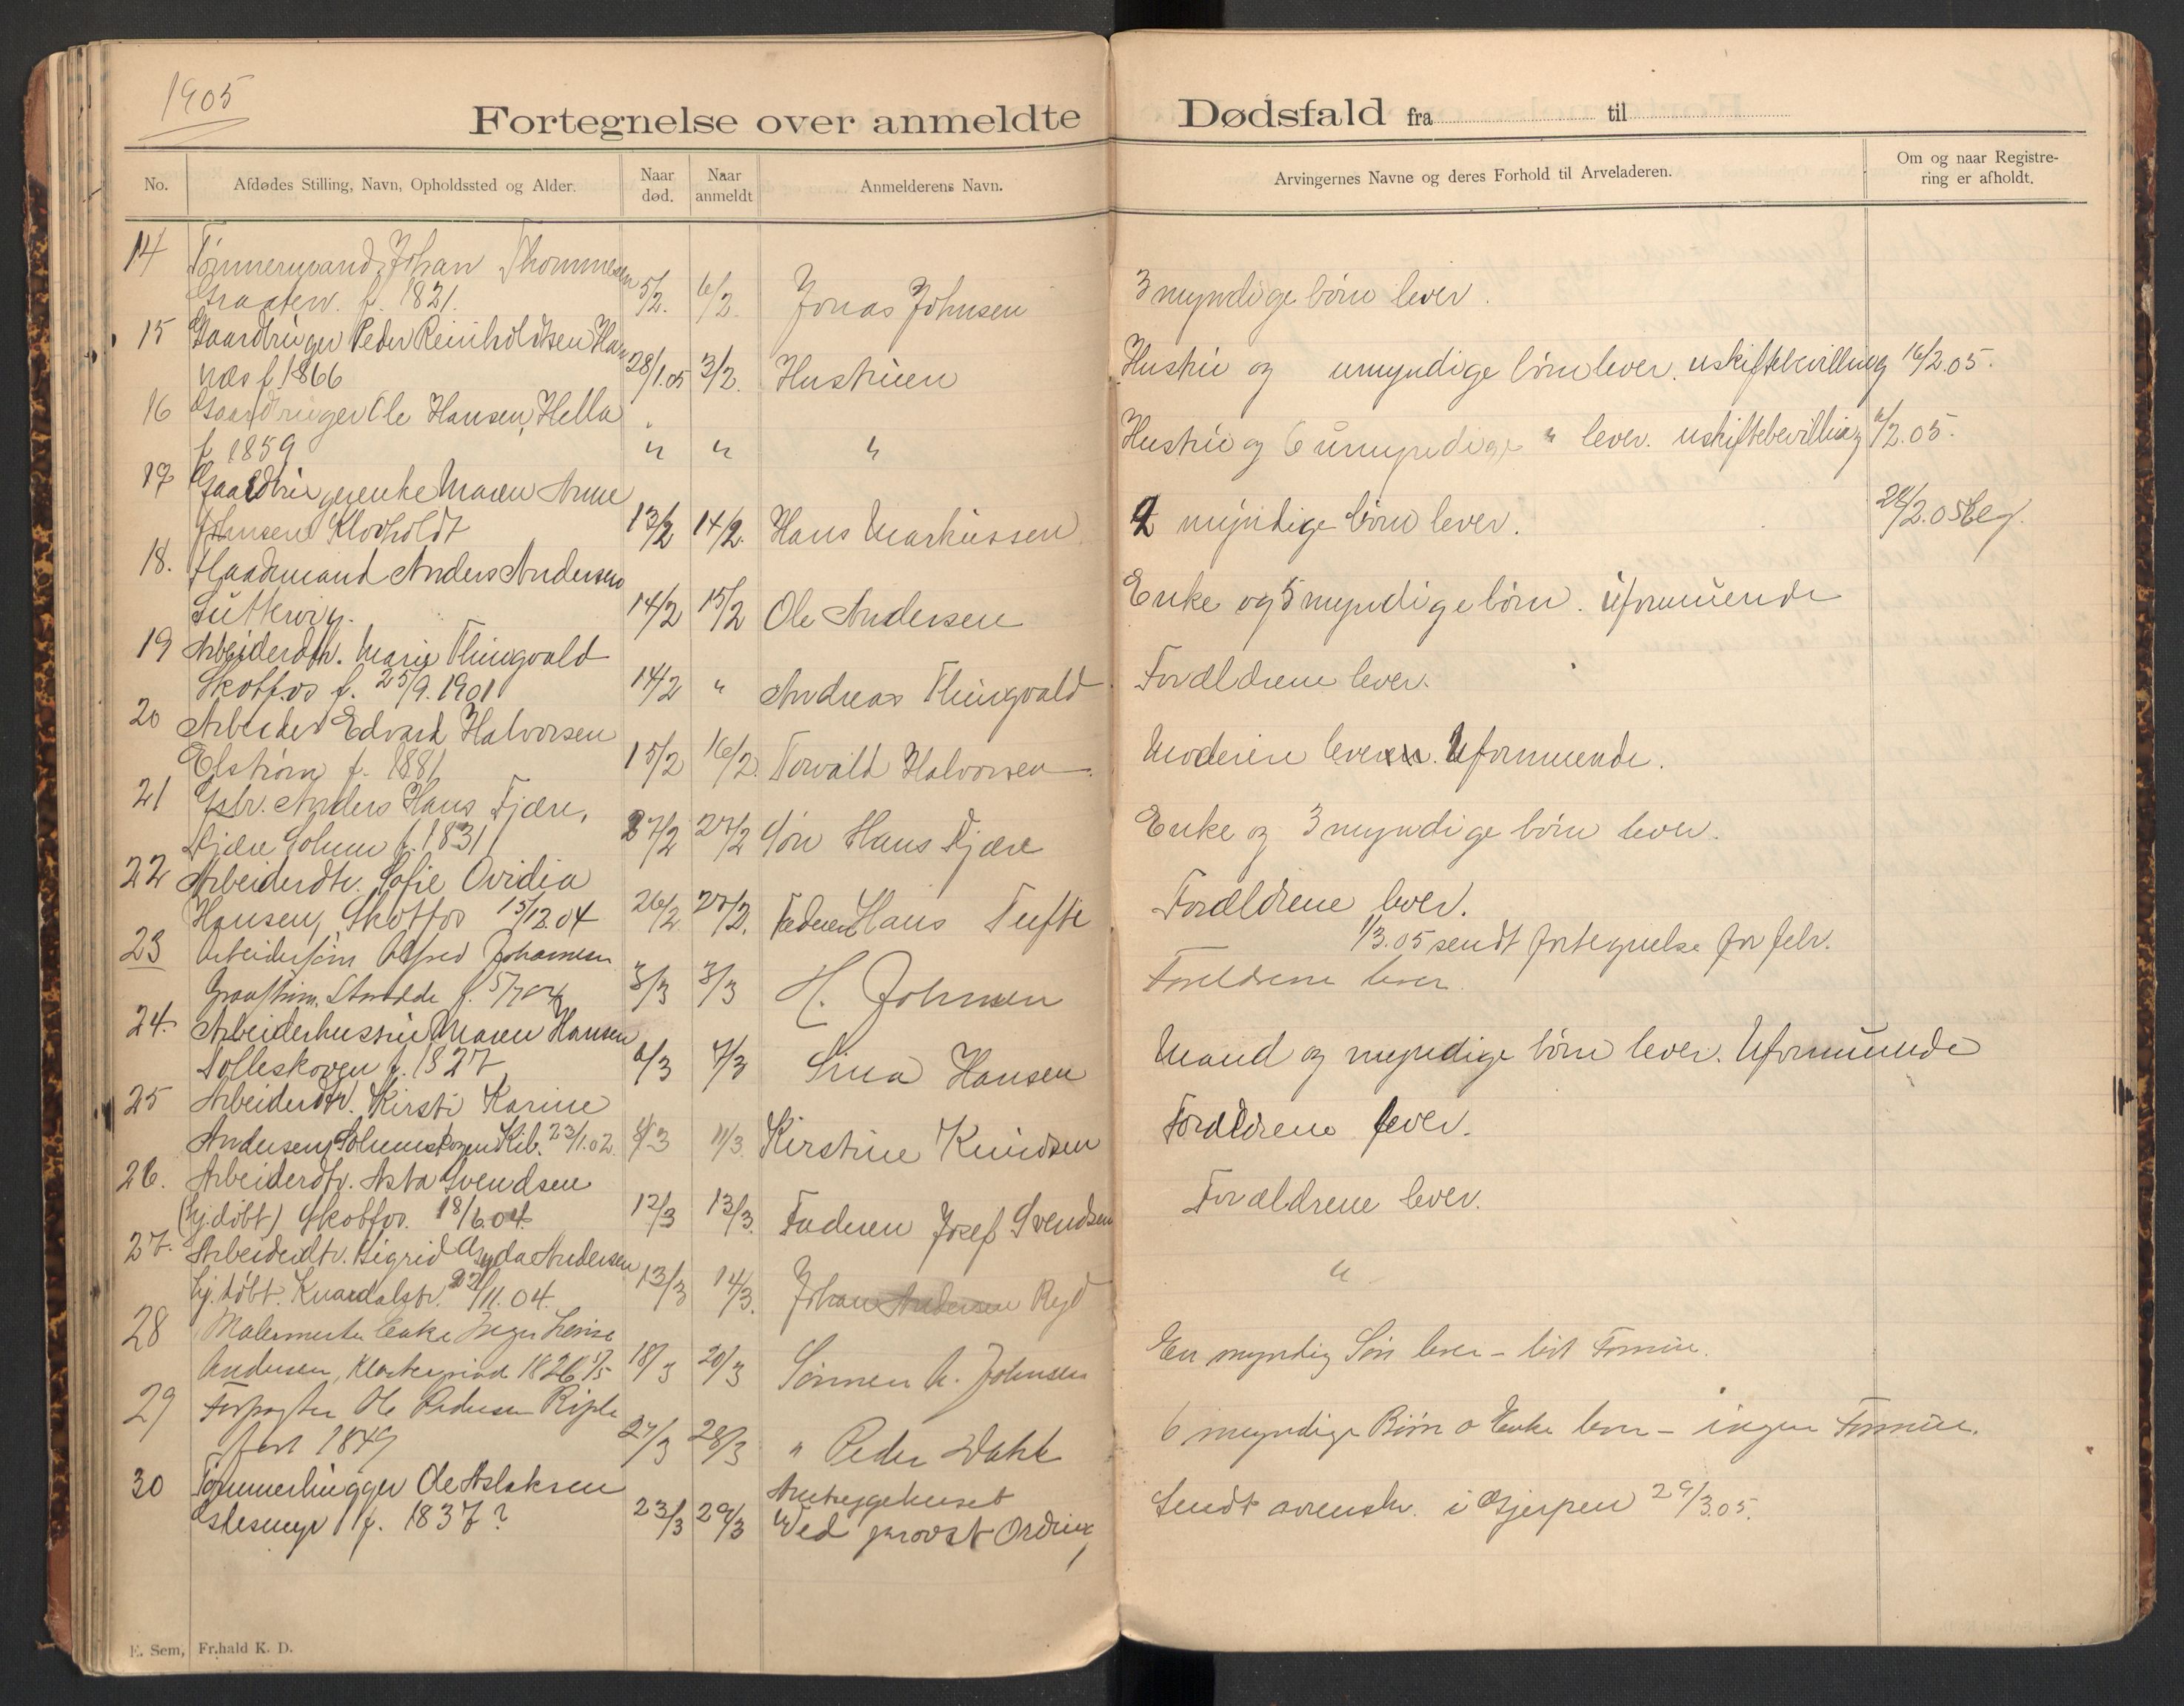 1905
Fortegnelse over anmeldte Dødsfald fra til
No. Afdødes Stilling, Navn, Opholdssted og Alder. Naar død. Naar anmeldt Anmelderens Navn. Arvingernes Navne og deres Forhold til Arveladeren. Om og naar Registrering er afholdt.
14 Tømmermand Johan Thommesen
f. 1821. 5/2. 6/2. Jonas Johnsen 3 myndige børn lever.
15 Gaardbruger Peder Reinholdtsen Ham
næs f. 1866 28/1.05 3/2. Hustruen Hustru og umyndige børn lever. uskiftebevilling 16/2.05.
16 Gaardbruger Ole Hansen, Hella
f 1859 " " " Hustru og 6 umyndige " lever. uskiftebevilling 6/2.05.
17 Gaardbrugerenke Maren Anne
Johnsen Klovholdt 13/2 14/2. Hans Markussen 2 myndige børn lever. 28/2.05
18. Flaademand Anders Andersen
14/2 15/2 Ole Andersen Enke og 5 myndige børn. uformuende
19 Arbeiderdtr. Marie Thingvald
Skotfos f. 25/9.1901 14/2 " Andreas Thingvald Forældrene lever.
20 Arbeider Edvard Halvorsen
Elstrøm f. 1881 15/2 16/2. Torvald Halvorsen Moderen lever. Uformuende.
21 Gbr. Anders Hans Fjære,
Fjære Solum f. 1831 27/2 27/2 Søn Hans Fjære Enke og 3 myndige børn lever.
22 Arbeiderdtr. Sofie Ovidia
Hansen, Skotfos 15/12.04 26/2 27/2. Faderen Hans Tufte Forældrene lever.
1/3.05 sendt fortegnelse for febr.
23 Arbeidersøn Alfred Johannesen
3/3 3/3 H. Johnsen Forældrene lever.
24. Arbeiderhustru Maren Hansen
Tolleskogen f. 1827 6/3 7/3 Sina Hansen Mand og myndige børn lever. Uformuende
25 Arbeiderdtr. Kirsti Karine
Andersen, 23/1.02 11/3. Kirstine Knudsen Forældrene lever.
26. Arbeiderdtr. Asta Svendsen
(hj.døbt) Skotfos. 18/6.04 12/3 13/3. Faderen Josef Svendsen Forældrene lever.
27. Arbeiderdtr. Sigrid Andersen
hj. døbt. Knardalstr. 22/11.04. 13/3 14/3. Johan Andersen Ryd "
28 Malermester Enke Inger
Andersen, 1826 18/3 20/3 Sønnen A. Johnsen En myndig Søn lever – lidt Formue.
29 Forpagter Ole Pedersen
født 1849 27/3 28/3 " Peder Dahl 6 myndige Børn o Enke lever – ingen Formue.
30 Tømmerhugger Ole Aslaksen
f. 1837? 23/3 29/3 Amtsygehuset
Ved provst Ording Sendt i Gjerpen 29/3.05.
E. Sem, Fr.hald K. D.